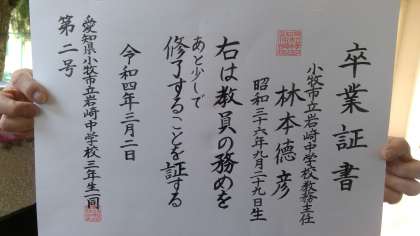 卒業証書
小牧市立岩崎中学校教務主任
林本德彦
昭和三十六年九月二十九日生
右は教員の務めを
あと少しで
修了することを証する
令和四年三月二日
愛知県小牧市立岩崎中学校三年生一同
第二号